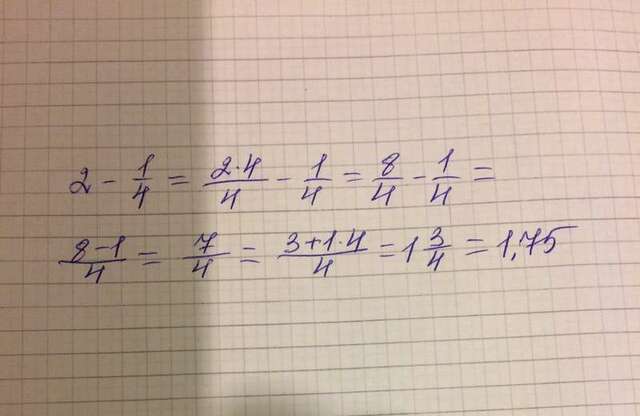 2 - 1/4 = 2·4/4 - 1/4 = 8/4 - 1/4 =
8-1/4 = 7/4 = 3+1·4/4 = 1 3/4 = 1,75